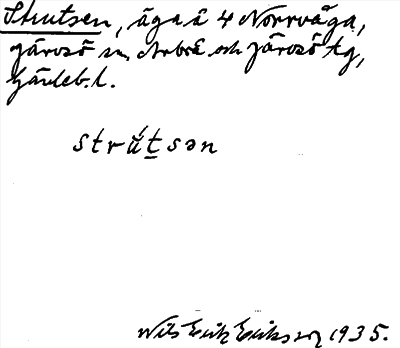 Strutsen, äga å 4 Norrväga,
Järvsö sn, Arbrå och Järvsö tg,
Gävleb. l.
strú̆t̲sən
Nils Erik Eriksson 1935.